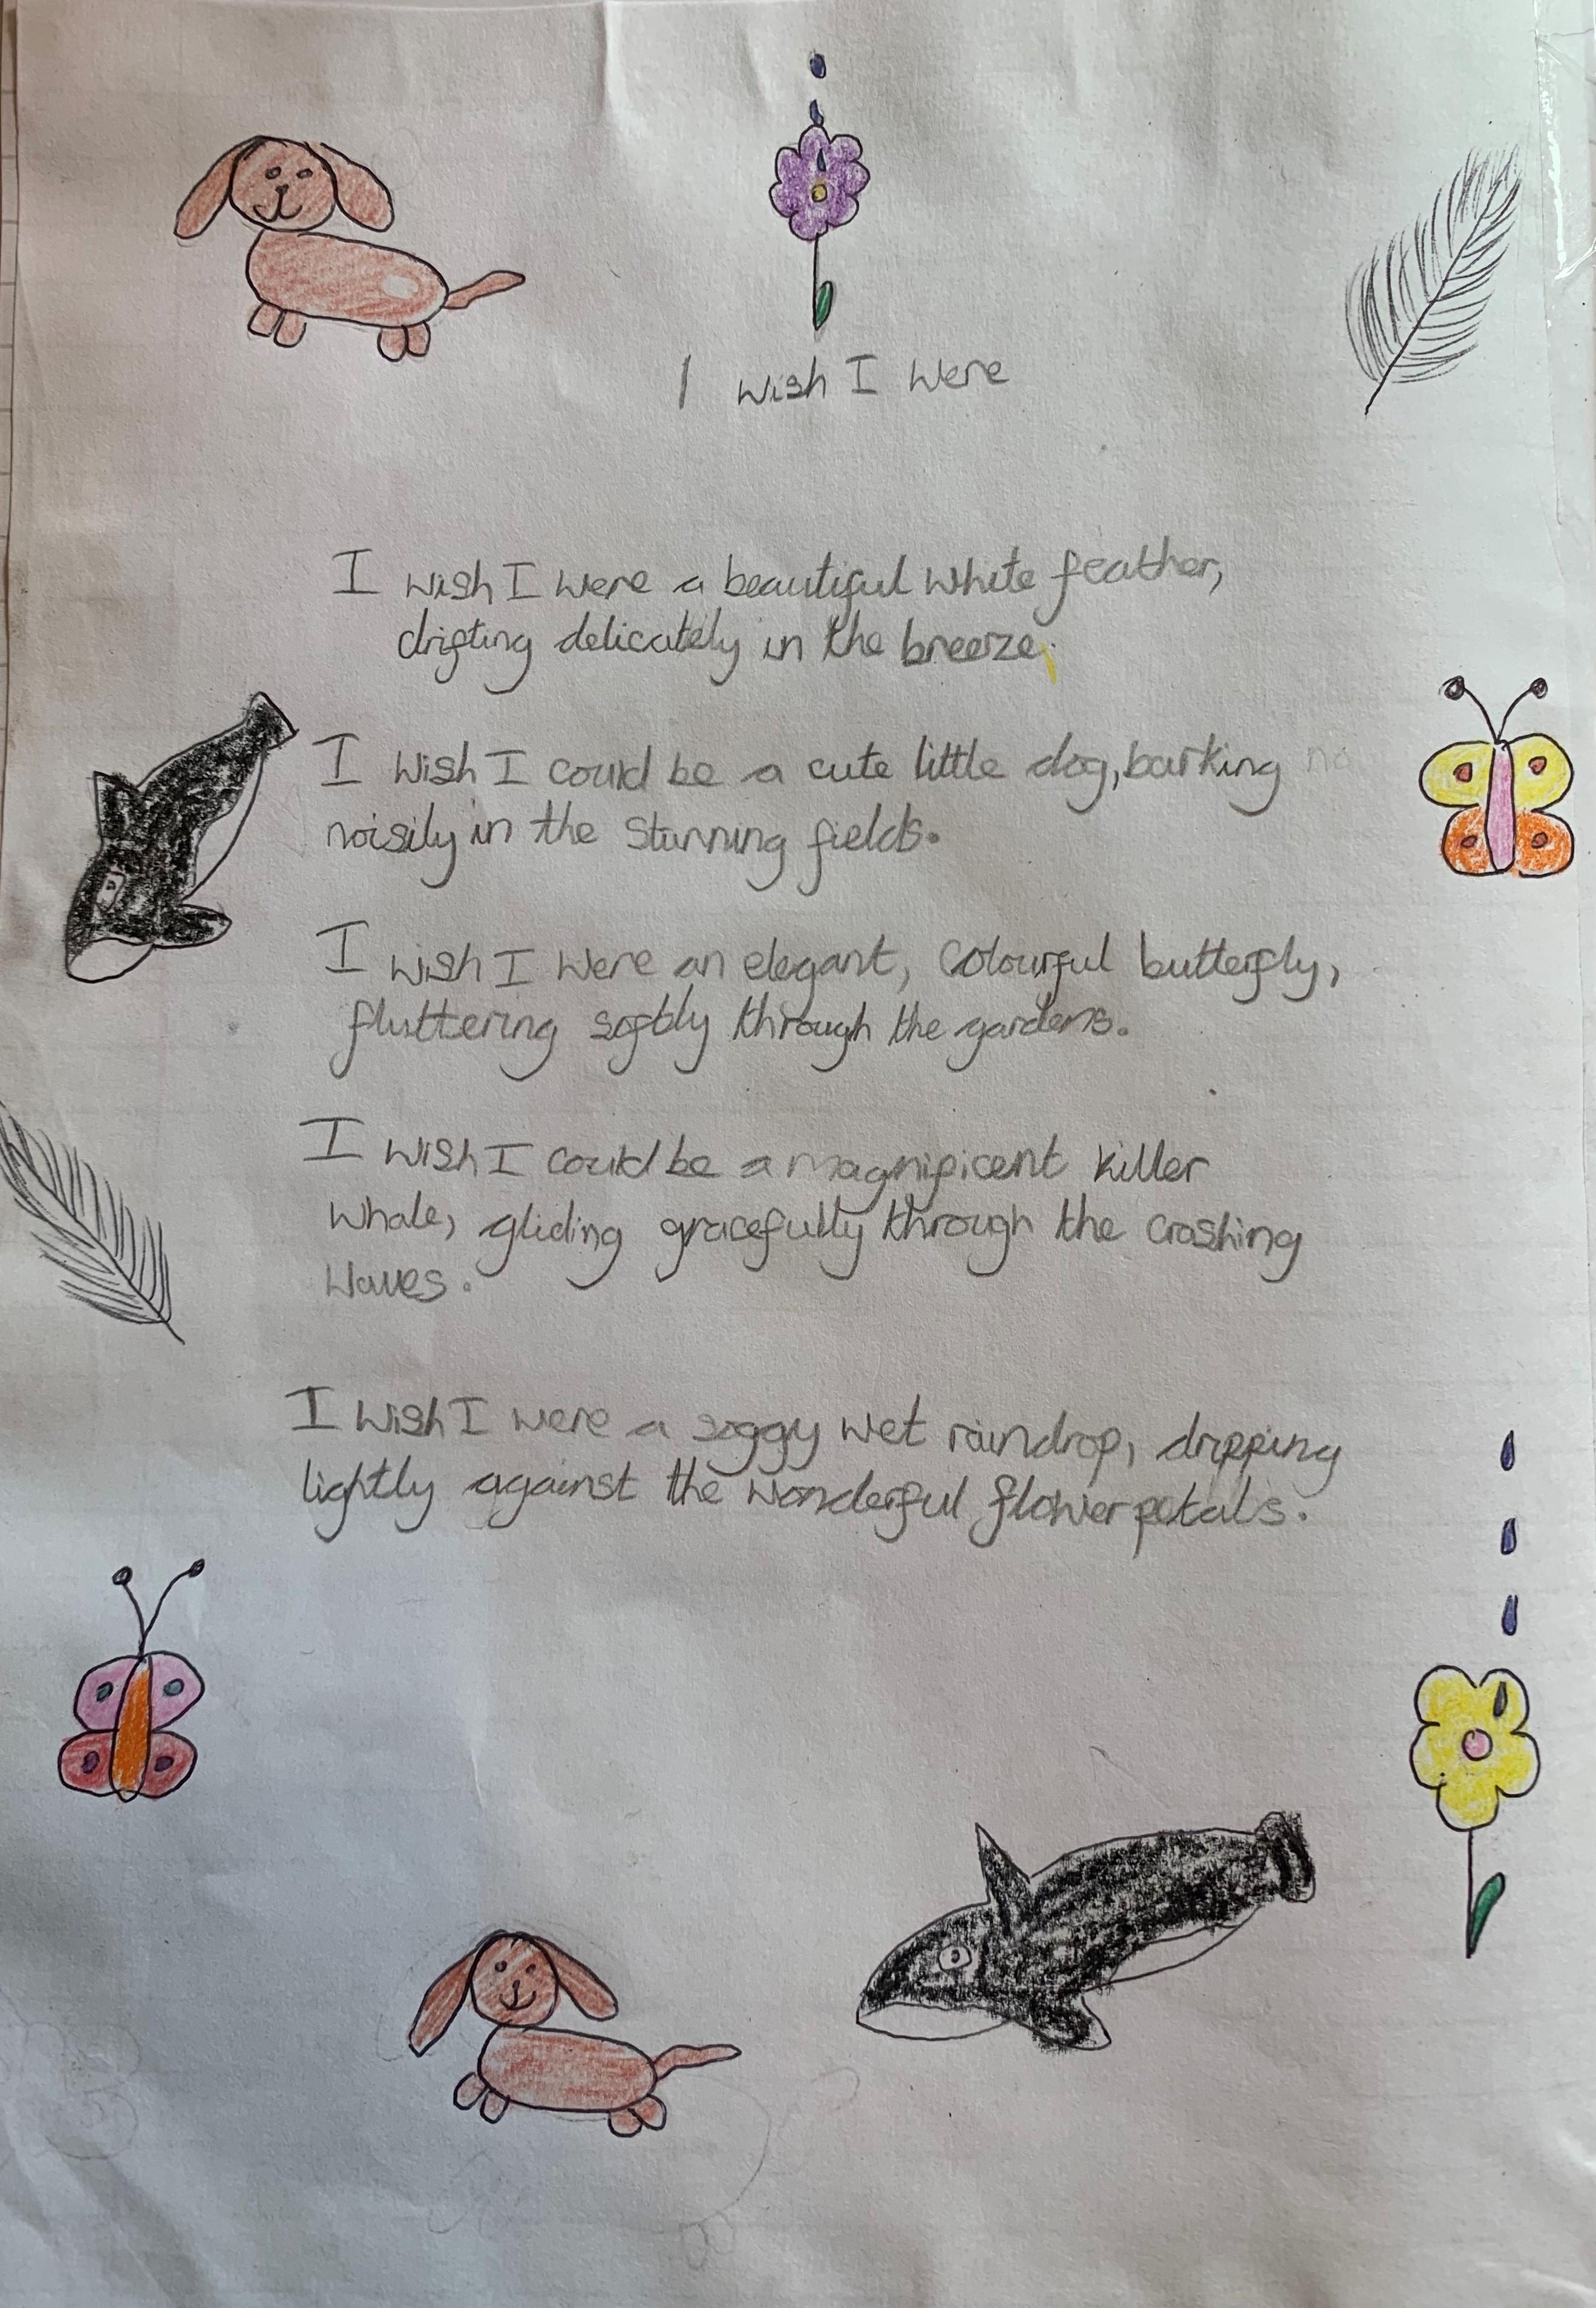 I wish I were
I wish I were a beautiful white feather,
drifting delicately in the breeze.
I wish I could be a cute little dog, barking no
noisily in the stunning fields.
I wish I were an elegant, colourful butterfly,
fluttering softly through the gardens.
I wish I could be a magnificent killer
whale, gliding gracefully through the crashing
waves.
I wish I were a soggy wet raindrop, dripping
lightly against the wonderful flower petals.